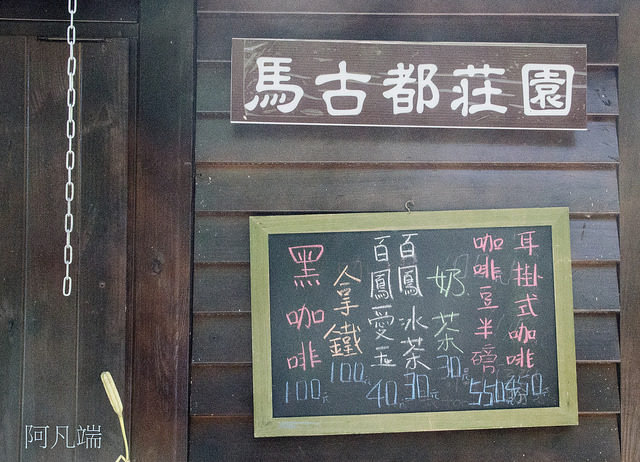 馬古都莊園
耳掛式咖啡 450元
咖啡豆半磅 550元
奶茶 30元
百鳳冰茶 30元
百鳳愛玉 40元
拿鐵 100元
黑咖啡 100元
阿凡端